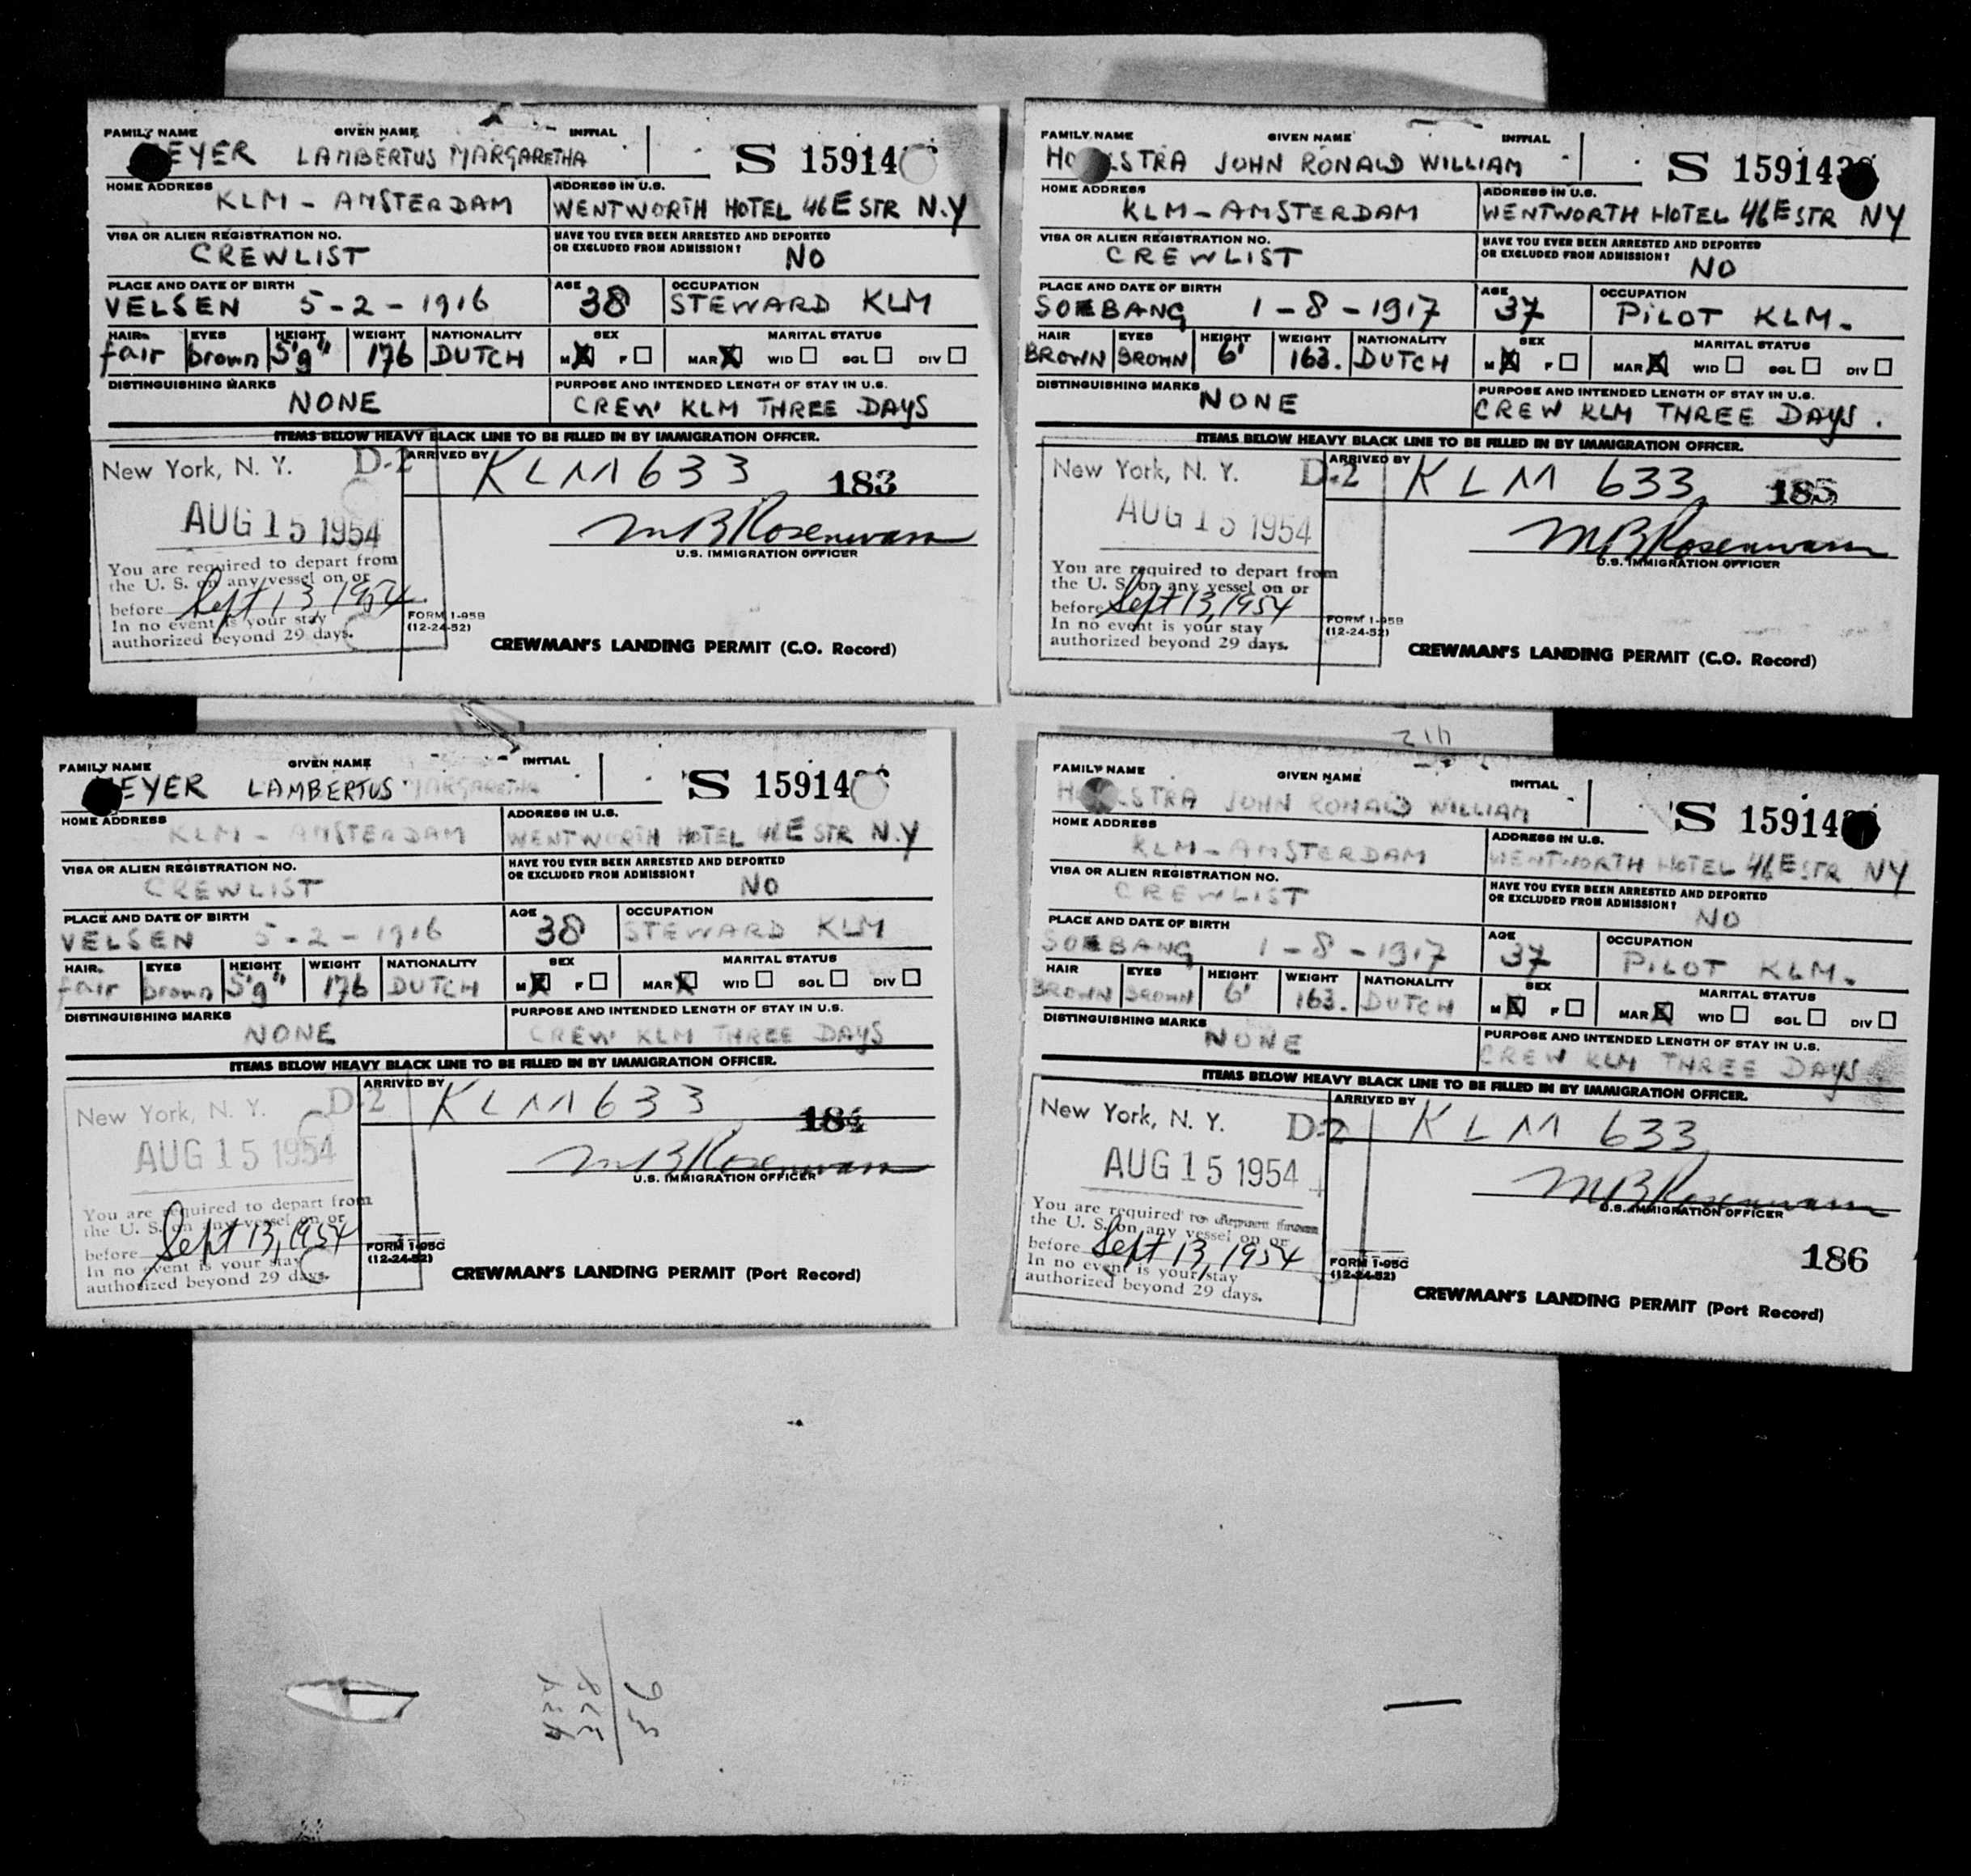 FAMILY NAME GIVEN NAME INITIAL
EYER LAMBERTUS MARGARETHA S 15914
HOME ADDRESS ADDRESS IN U.S.
KLM - AMSTERDAM WENTWORTH HOTEL 46E STR N.Y
VISA OR ALIEN REGISTRATION NO. HAVE YOU EVER BEEN ARRESTED AND DEPORTED
OR EXCLUDED FROM ADMISSION?
CREWLIST NO
PLACE AND DATE OF BIRTH AGE OCCUPATION
VELSEN 5-2-1916 38 STEWARD KLM
HAIR EYES HEIGHT WEIGHT NATIONALITY SEX MARITAL STATUS
fair brown 5'9" 176 DUTCH M X F MAR X WID SGL DIV
DISTINGUISHING MARKS PURPOSE AND INTENDED LENGTH OF STAY IN U.S.
NONE CREW KLM THREE DAYS
ITEMS BELOW HEAVY BLACK LINE TO BE FILLED IN BY IMMIGRATION OFFICER.
New York, N. Y. D-2 ARRIVED BY KLM 633 183
AUG 15 1954
U.S. IMMIGRATION OFFICER
You are required to depart from
the U. S. on any vessel on or
before Sept 13, 1954
In no event is your stay
authorized beyond 29 days.
FORM I-95B
(12-24-52)
CREWMAN'S LANDING PERMIT (C.O. Record)
FAMILY NAME GIVEN NAME INITIAL
HO STRA JOHN RONALD WILLIAM S 15914
HOME ADDRESS ADDRESS IN U.S.
KLM - AMSTERDAM WENTWORTH HOTEL 46E STR NY
VISA OR ALIEN REGISTRATION NO. HAVE YOU EVER BEEN ARRESTED AND DEPORTED
OR EXCLUDED FROM ADMISSION?
CREWLIST NO
PLACE AND DATE OF BIRTH AGE OCCUPATION
SOEBANG 1-8-1917 37 PILOT KLM.
HAIR EYES HEIGHT WEIGHT NATIONALITY SEX MARITAL STATUS
BROWN BROWN 6' 163. DUTCH M X F MAR X WID SGL DIV
DISTINGUISHING MARKS PURPOSE AND INTENDED LENGTH OF STAY IN U.S.
NONE CREW KLM THREE DAYS.
ITEMS BELOW HEAVY BLACK LINE TO BE FILLED IN BY IMMIGRATION OFFICER.
New York, N. Y. D-2 ARRIVED BY KLM 633 185
AUG 15 1954
U.S. IMMIGRATION OFFICER
You are required to depart from
the U. S. on any vessel on or
before Sept 13, 1954
In no event is your stay
authorized beyond 29 days.
FORM I-95B
(12-24-52)
CREWMAN'S LANDING PERMIT (C.O. Record)
FAMILY NAME GIVEN NAME INITIAL
EYER LAMBERTUS MARGARETHA S 15914
HOME ADDRESS ADDRESS IN U.S.
KLM - AMSTERDAM WENTWORTH HOTEL 46E STR N.Y
VISA OR ALIEN REGISTRATION NO. HAVE YOU EVER BEEN ARRESTED AND DEPORTED
OR EXCLUDED FROM ADMISSION?
CREWLIST NO
PLACE AND DATE OF BIRTH AGE OCCUPATION
VELSEN 5-2-1916 38 STEWARD KLM
HAIR EYES HEIGHT WEIGHT NATIONALITY SEX MARITAL STATUS
fair brown 5'9" 176 DUTCH M X F MAR X WID SGL DIV
DISTINGUISHING MARKS PURPOSE AND INTENDED LENGTH OF STAY IN U.S.
NONE CREW KLM THREE DAYS
ITEMS BELOW HEAVY BLACK LINE TO BE FILLED IN BY IMMIGRATION OFFICER.
New York, N. Y. D-2 ARRIVED BY KLM 633 184
AUG 15 1954
U.S. IMMIGRATION OFFICER
You are required to depart from
the U. S. on any vessel on or
before Sept 13, 1954
In no event is your stay
authorized beyond 29 days.
FORM I-95C
(12-24-52)
CREWMAN'S LANDING PERMIT (Port Record)
FAMILY NAME GIVEN NAME INITIAL
H STRA JOHN RONALD WILLIAM S 15914
HOME ADDRESS ADDRESS IN U.S.
KLM - AMSTERDAM WENTWORTH HOTEL 46E STR NY
VISA OR ALIEN REGISTRATION NO. HAVE YOU EVER BEEN ARRESTED AND DEPORTED
OR EXCLUDED FROM ADMISSION?
CREWLIST NO
PLACE AND DATE OF BIRTH AGE OCCUPATION
SOEBANG 1-8-1917 37 PILOT KLM.
HAIR EYES HEIGHT WEIGHT NATIONALITY SEX MARITAL STATUS
BROWN BROWN 6' 163. DUTCH M X F MAR X WID SGL DIV
DISTINGUISHING MARKS PURPOSE AND INTENDED LENGTH OF STAY IN U.S.
NONE CREW KLM THREE DAYS
ITEMS BELOW HEAVY BLACK LINE TO BE FILLED IN BY IMMIGRATION OFFICER.
New York, N. Y. D-2 ARRIVED BY KLM 633
AUG 15 1954
U.S. IMMIGRATION OFFICER
You are required to depart from
the U. S. on any vessel on or
before Sept 13, 1954
In no event is your stay
authorized beyond 29 days.
FORM I-95C
(12-24-52)
186
CREWMAN'S LANDING PERMIT (Port Record)